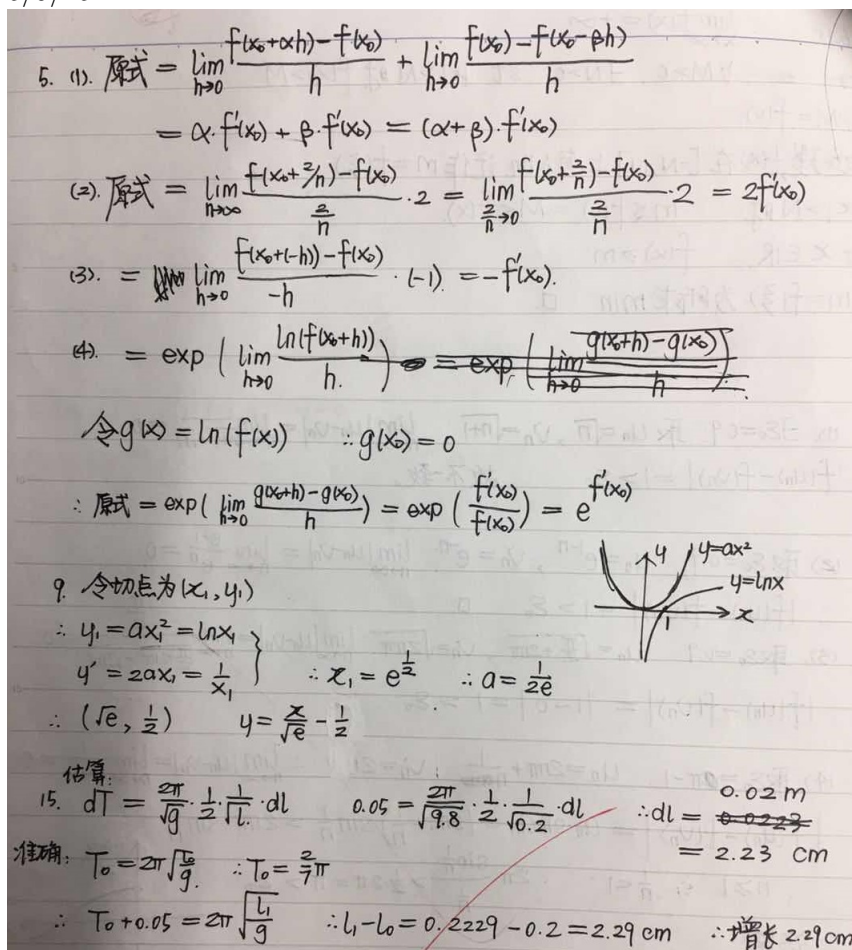 5. (1). 原式 = lim_{h→0} (f(x₀+αh) - f(x₀))/h + lim_{h→0} (f(x₀) - f(x₀-βh))/h
= α·f'(x₀) + β·f'(x₀) = (α+β)·f'(x₀)
(2). 原式 = lim_{n→∞} (f(x₀+2/n) - f(x₀))/(2/n) ·2 = lim_{2/n→0} (f(x₀+2/n) - f(x₀))/(2/n) ·2 = 2f'(x₀)
(3). = lim_{h→0} (f(x₀+(-h)) - f(x₀))/(-h) ·(-1) = -f'(x₀).
(4). = exp( lim_{h→0} ln(f(x₀+h))/h. ) = exp( lim_{h→0} (g(x₀+h) - g(x₀))/h )
令g(x) = ln(f(x)) ∴g(x₀) = 0
∴ 原式 = exp( lim_{h→0} (g(x₀+h) - g(x₀))/h ) = exp( f'(x₀)/f(x₀) ) = e^{f'(x₀)}
y y=ax²
y=lnx
1 x
9. 令切点为(x₁, y₁)
∴ y₁ = ax₁² = lnx₁
y' = 2ax₁ = 1/x₁ } ∴ x₁ = e^{1/2} ∴ a = 1/(2e)
∴ (√e, 1/2) y = x/√e - 1/2
估算:
15. dT = 2π/√g · 1/2 · 1/√l · dl 0.05 = 2π/√9.8 · 1/2 · 1/√0.2 · dl ∴dl = 0.0223 0.02m
= 2.23 cm
准确: T₀ = 2π√(T₀/g). ∴T₀ = 2/7 π
∴ T₀+0.05 = 2π√(l₁/g) ∴l₁-l₀ = 0.2229 - 0.2 = 2.29 cm ∴增长 2.29cm